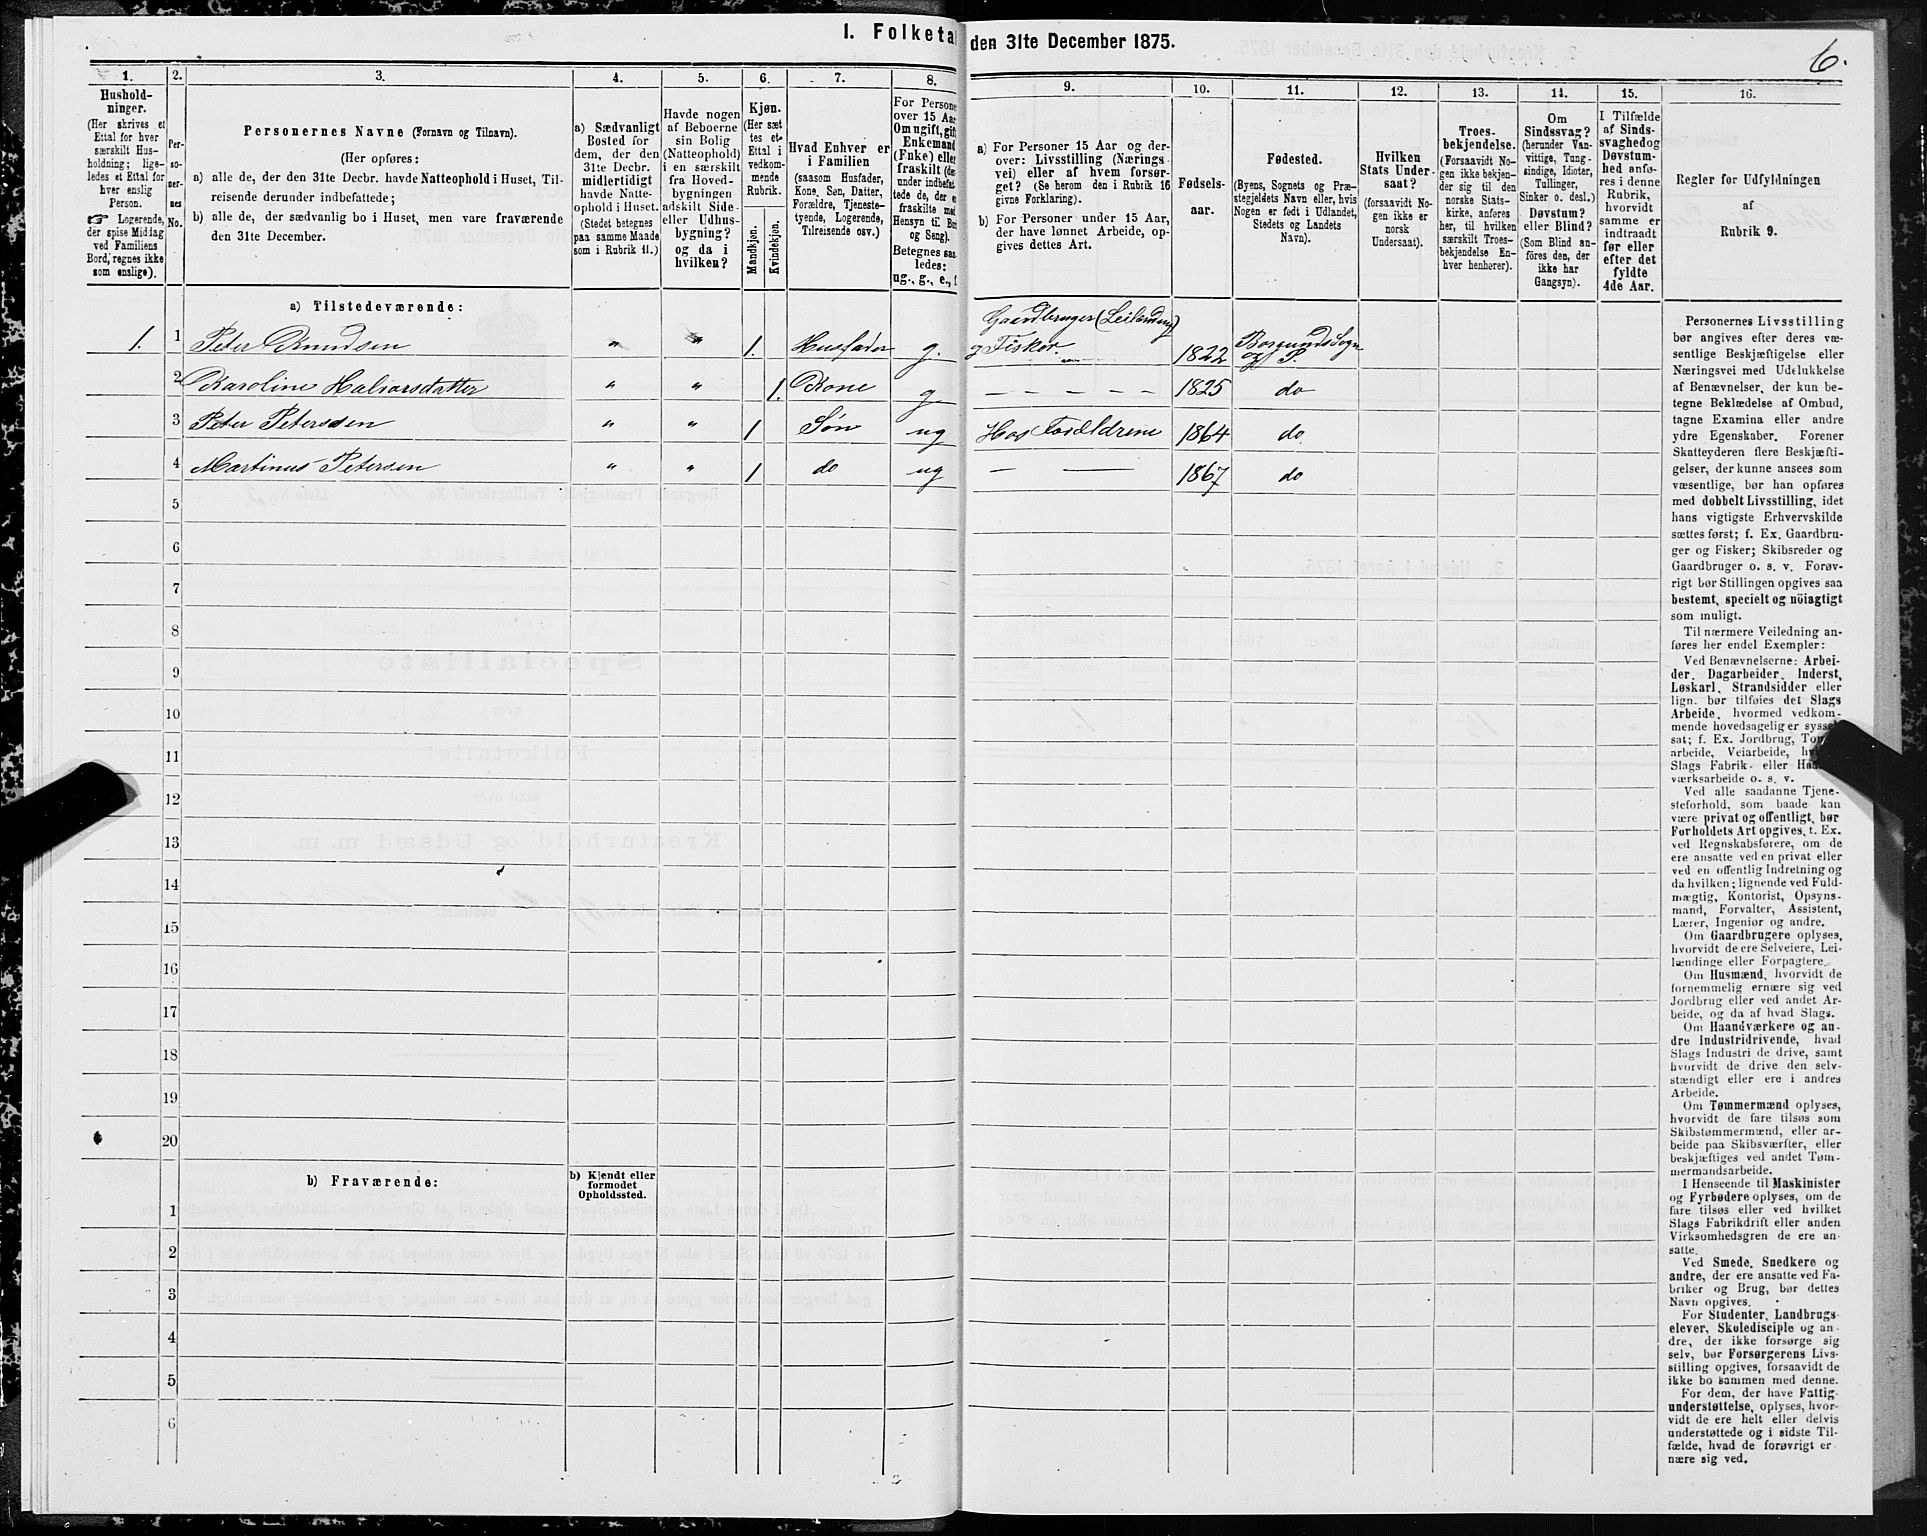 I. Folketa den 31te December 1875.
6.
1.
Hushold-
ninger.
(Her skrives et
Ettal for hver
særskilt Hus-
holdning; lige-
ledes et Ettal for
hver enslig
Person.
☞ Logerende,
der spise Middag
ved Familiens
Bord, regnes ikke
som enslige).
2.
Per-
so-
ner-
nes
No.
3.
Personernes Navne (Fornavn og Tilnavn).
(Her opføres:
a) alle de, der den 31te Decbr. havde Natteophold i Huset, Til-
reisende derunder indbefattede;
b) alle de, der sædvanlig bo i Huset, men vare fraværende
den 31te December.
4.
a) Sædvanligt
Bosted for
dem, der den
31te Decbr.
midlertidigt
havde Natte-
ophold i Huset.
(Stedet betegnes
paa samme Maade
som i Rubrik 11.)
5.
Havde nogen
af Beboerne
sin Bolig
(Natteophold)
i en særskilt
fra Hoved-
bygningen
adskilt Side-
eller Udhus-
bygning?
og da i
hvilken?
6.
Kjøn.
(Her sæt
tes et
Ettal i
vedkom-
mende
Rubrik.
Mandkjøn.
Kvindekjøn.
7.
Hvad Enhver er
i Familien
(saasom Husfader,
Kone, Søn, Datter,
Forældre, Tjeneste-
tyende, Logerende,
Tilreisende osv.)
8.
For Persone
over 15 Aar
Om ugift, gift
Enkemand
(Enke) eller
fraskilt (de
under indbefat
tede de, der e
fraskilte med
Hensyn til Bo
og Seng).
Betegnes saa
ledes:
ug., g., e., f
9.
a) For Personer 15 Aar og der-
over: Livsstilling (Nærings-
vei) eller af hvem forsør-
get? (Se herom den i Rubrik 16
givne Forklaring).
b) For Personer under 15 Aar,
der have lønnet Arbeide, op-
gives dettes Art.
10.
Fødsels-
aar.
11.
Fødested.
(Byens, Sognets og Præ-
stegjeldets Navn eller, hvis
Nogen er født i Udlandet,
Stedets og Landets
Navn).
12.
Hvilken
Stats Under-
saat?
(forsaavidt No-
gen ikke er
norsk
Undersaat).
13.
Troes-
bekjendelse.
(Forsaavidt No-
gen ikke bekjen-
der sig til den
norske Stats-
kirke, anføres
her, til hvilken
særskilt Troes-
bekjendelse En-
hver henhører).
14.
Om
Sindssvag?
(herunder Van-
vittige, Tung-
sindige, Idioter,
Tullinger,
Sinker o. desl.)
Døvstum?
eller Blind?
(Som Blind an-
føres den, der
ikke har
Gangsyn).
15.
I Tilfælde
af Sinds-
svaghed og
Døvstum-
hed anfø-
res i denne
Rubrik,
hvorvidt
samme er
indtraadt
før eller
efter det
fyldte
4de Aar.
16.
Regler for Udfyldningen
af
Rubrik 9.
a) Tilstedeværende:
1. 1 Peter Knudsen " " 1. Husfader g. Gaardbruger (Leilending) og Fisker 1822 Borgunds Sogn og P.
2 Karoline Halvorsdatter " " 1. Kone g. – – – – – 1825 do
3 Peter Petersen " " 1 Søn ug Hos Forældrene 1864 do
4 Martinus Petersen " " 1 do ug — — 1867 do
5
6
7
8
9
10
11
12
13
14
15
16
17
18
19
20
b) Fraværende:
b) Kjendt eller
formodet
Opholdssted.
1
2
3
4
5
6
Personernes Livsstilling
bør angives efter deres væ-
sentlige Beskjæftigelse eller
Næringsvei med Udelukkelse
af Benævnelser, der kun be-
tegne Beklædelse af Ombud,
tagne Examina eller andre
ydre Egenskaber. Forener
Skatteyderen flere Beskjæfti-
gelser, der kunne ansees som
væsentlige, bør han opføres
med dobbelt Livsstilling, idet
hans vigtigste Erhvervskilde
sættes først; f. Ex. Gaardbru-
ger og Fisker; Skibsreder og
Gaardbruger o. s. v. Forøv-
rigt bør Stillingen opgives saa
bestemt, specielt og nöiagtigt
som muligt.
Til nærmere Veiledning an-
føres her endel Exempler:
Ved Benævnelserne: Arbei-
der, Dagarbeider, Inderst,
Løskarl, Strandsidder eller
lign. bør tilføies det Slags
Arbeide, hvormed vedkom-
mende hovedsagelig er syssel
sat; f. Ex. Jordbrug, Tom
arbeide, Veiarbeide, hv
Slags Fabrik- eller Haa
værksarbeide o. s. v.
Ved alle saadanne Tjene-
steforhold, som baade kan
være privat og offentligt, bør
Forholdets Art opgives, t. Ex.
ved Regnskabsførere, om de
ere ansatte ved en privat eller
ved en offentlig Indretning og
da hvilken; lignende ved Fuld-
mægtig, Kontorist, Opsyns-
mand, Forvalter, Assistent,
Lærer, Ingeniør og andre.
Om Gaardbrugere oplyses,
hvorvidt de ere Selveiere, Lei-
lændinge eller Forpagtere.
Om Husmænd, hvorvidt de
fornemmelig ernære sig ved
Jordbrug eller ved andet Ar-
beide, og da af hvad Slags.
Om Haandværkere og an-
dre Industridrivende, hvad
Slags Industri de drive, samt
hvorvidt de drive den selv-
stændigt eller ere i andres
Arbeide.
Om Tømmermænd oplyses,
hvorvidt de fare tilsøs som
Skibstømmermænd, eller ar-
beide paa Skibsværfter, eller
beskjæftiges ved andet Tøm-
mermandsarbeide.
I Henseende til Maskinister
og Fyrbødere oplyses, om de
fare tilsøs eller ved hvilket
Slags Fabrikdrift eller anden
Virksomhedsgren de ere an-
satte.
Ved Smede, Snedkere og
andre, der ere ansatte ved Fa-
briker og Brug, bør dettes
Navn opgives.
For Studenter, Landbrugs-
elever, Skoledisciple og an-
dre, der ikke forsørge sig
selv, bør Forsørgerens Livs-
stilling opgives, forsaavidt de
ikke bo sammen med denne.
For dem, der have Fattig-
understøttelse, oplyses, hvor-
vidt de ere helt eller delvis
understøttede og i sidste Til-
fælde, hvad de forøvrigt er-
nære sig ved.